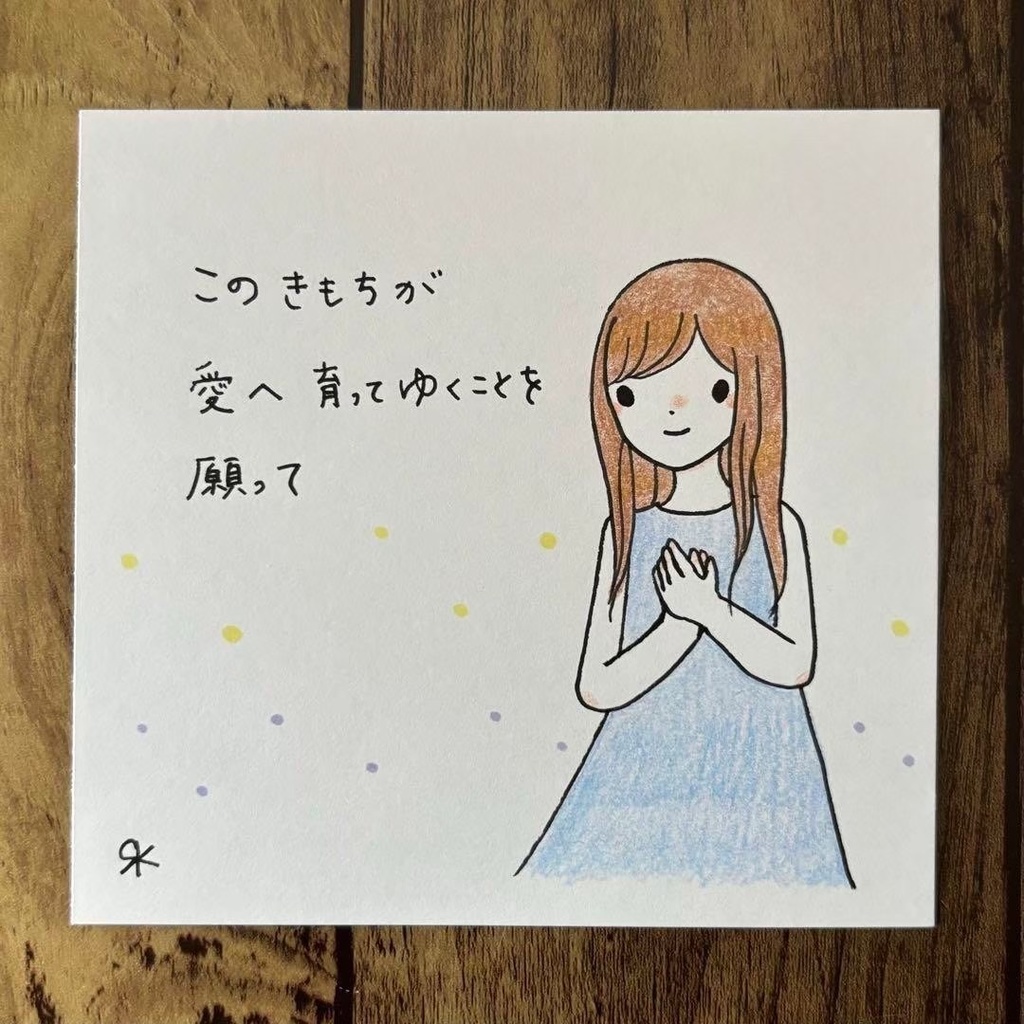 この きもちが
愛へ 育ってゆくことを
願って